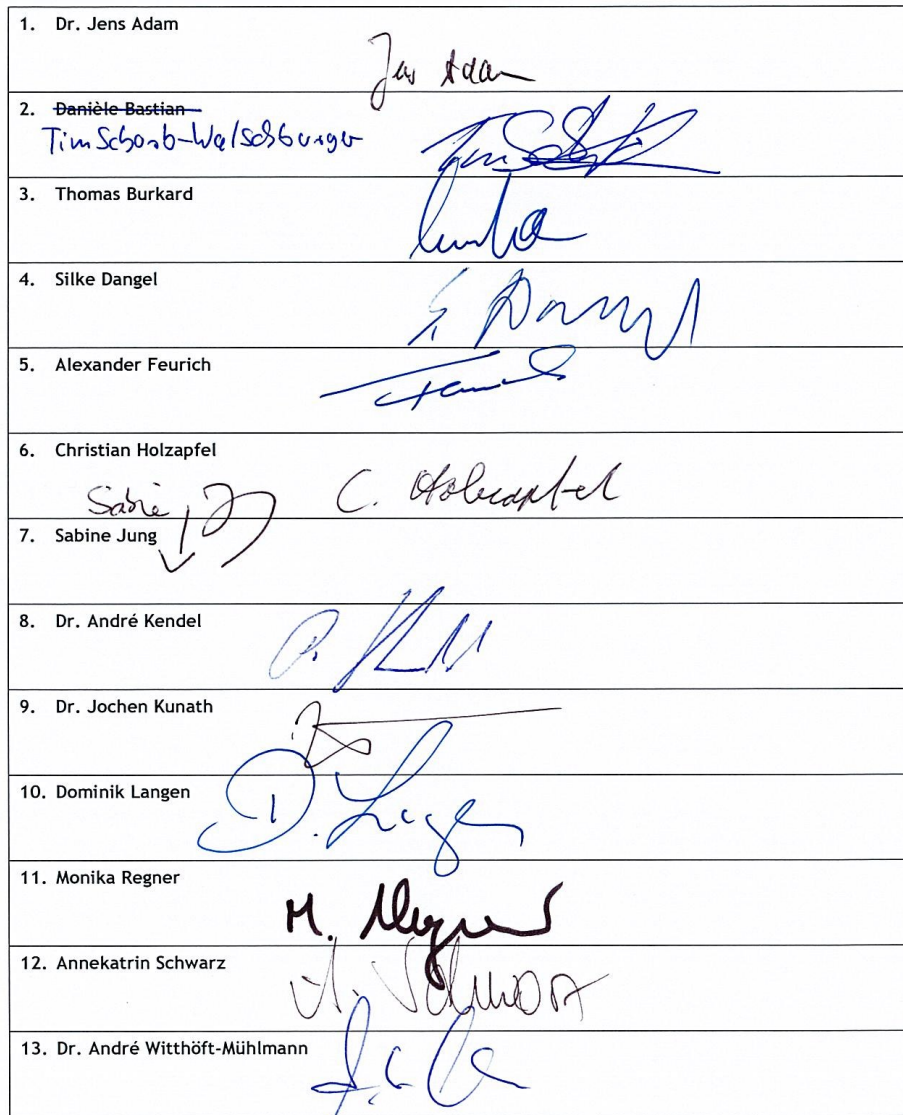 1. Dr. Jens Adam
Jens Adam
2. Danièle Bastian
Tim Schorb-Walschburger
3. Thomas Burkard
4. Silke Dangel
5. Alexander Feurich
6. Christian Holzapfel
Sabine C. Holzapfel
7. Sabine Jung
8. Dr. André Kendel
9. Dr. Jochen Kunath
10. Dominik Langen
D. Langen
11. Monika Regner
M. Regner
12. Annekatrin Schwarz
A. Schwarz
13. Dr. André Witthöft-Mühlmann